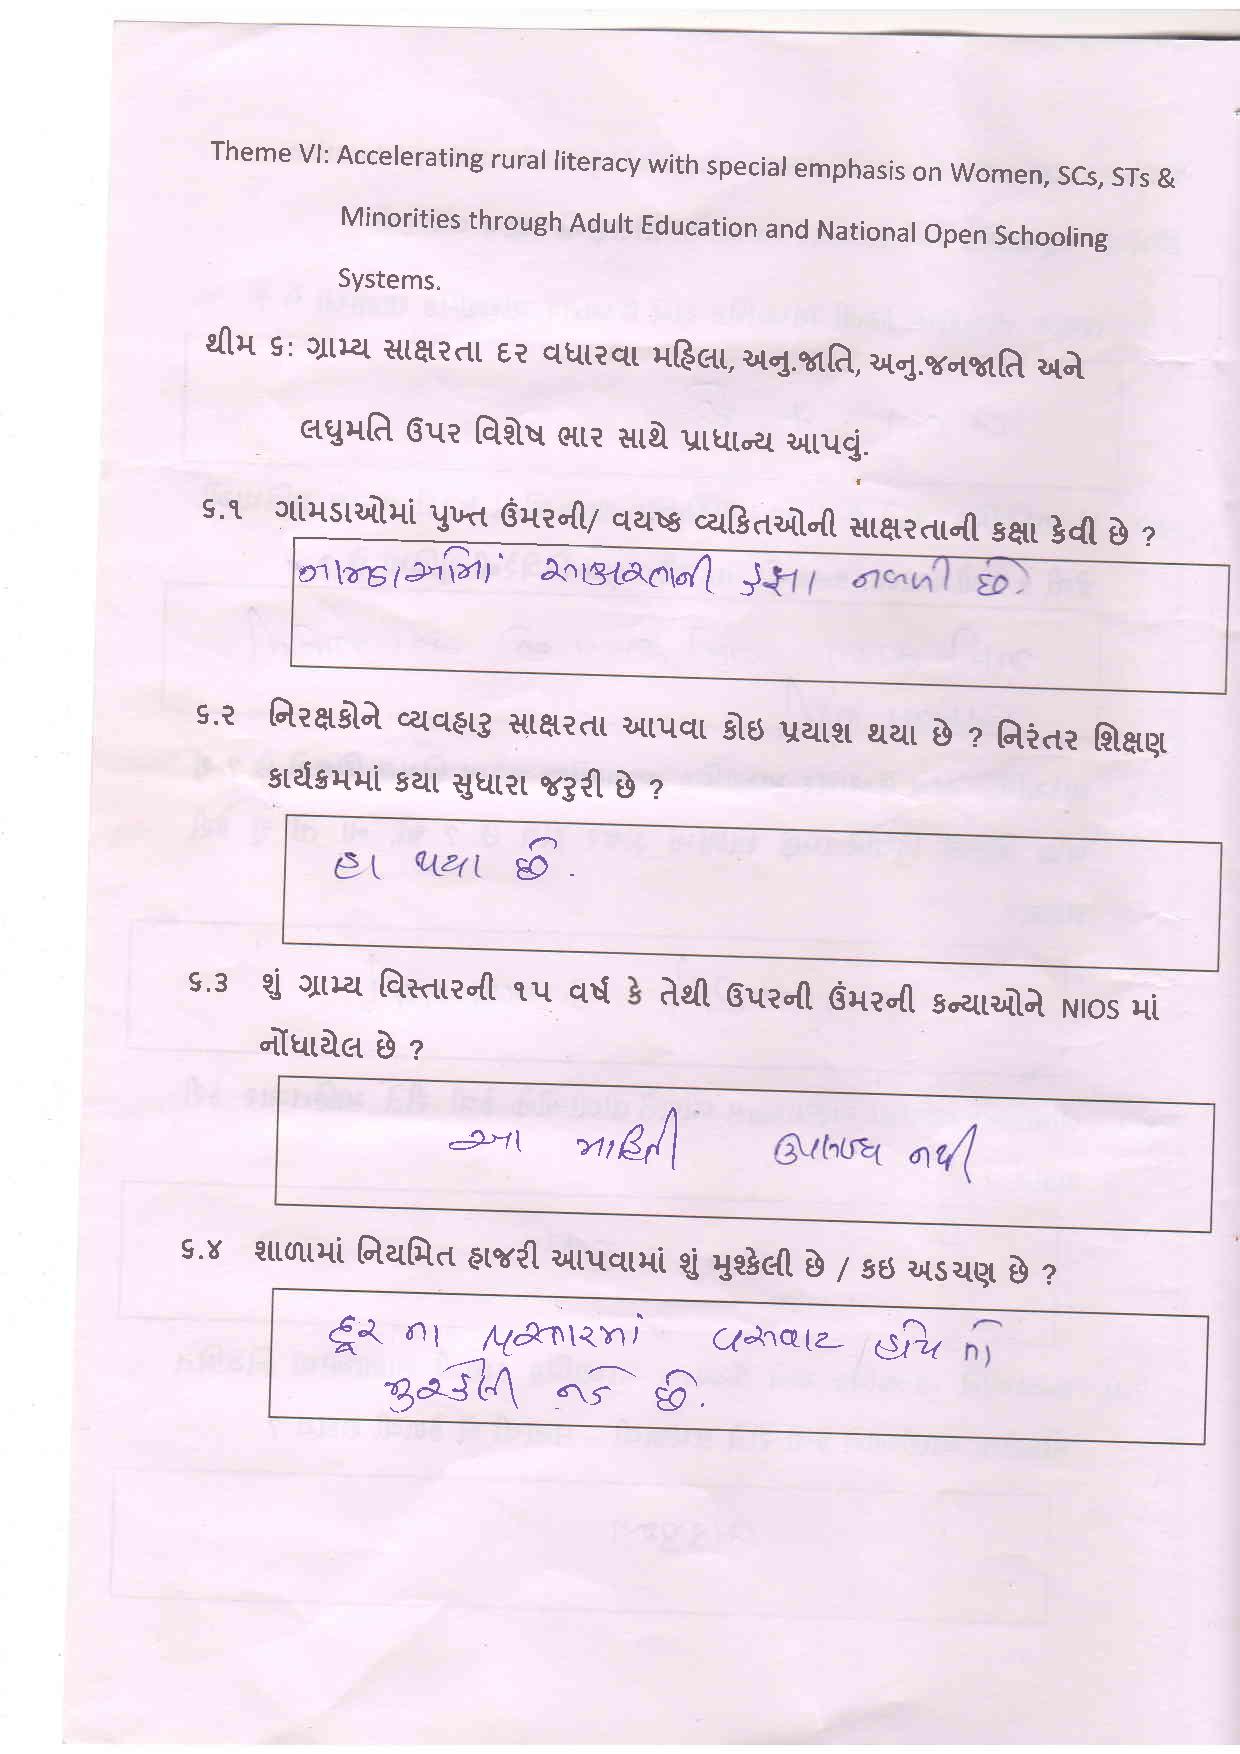 Theme VI: Accelerating rural literacy with special emphasis on Women, SCs, STs &
Minorities through Adult Education and National Open Schooling
Systems.
થીમ ૬: ગ્રામ્ય સાક્ષરતા દર વધારવા મહિલા, અનુ.જાતિ, અનુ.જનજાતિ અને
લઘુમતિ ઉપર વિશેષ ભાર સાથે પ્રાધાન્ય આપવું.
૬.૧ ગાંમડાઓમાં પુખ્ત ઉંમરની/ વયષ્ક વ્યકિતઓની સાક્ષરતાની કક્ષા કેવી છે ?
સાક્ષરતાની કક્ષા નબળી છે.
૬.૨ નિરક્ષકોને વ્યવહારુ સાક્ષરતા આપવા કોઇ પ્રયાશ થયા છે ? નિરંતર શિક્ષણ
કાર્યક્રમમાં કયા સુધારા જરુરી છે ?
હા થયા છે.
૬.૩ શું ગ્રામ્ય વિસ્તારની ૧૫ વર્ષ કે તેથી ઉપરની ઉંમરની કન્યાઓને NIOS માં
નોંધાયેલ છે ?
આ માહિતી ઉપલબ્ધ નથી
૬.૪ શાળામાં નિયમિત હાજરી આપવામાં શું મુશ્કેલી છે / કઇ અડચણ છે ?
દૂર ના વસવાટ હોય તો
મુશ્કેલી નડે છે.